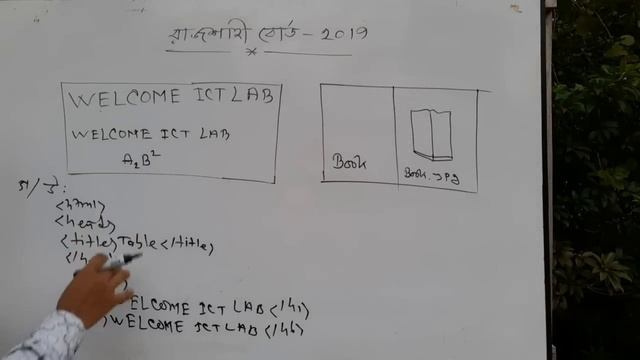 রাজশাহী বোর্ড - 2019
WELCOME ICT LAB
WELCOME ICT LAB
A₂B²
Book
Book.JPg
<html>
<head>
<title>Table</title>
</h
ELCOME ICT LAB</h1>
WELCOME ICT LAB</h6>